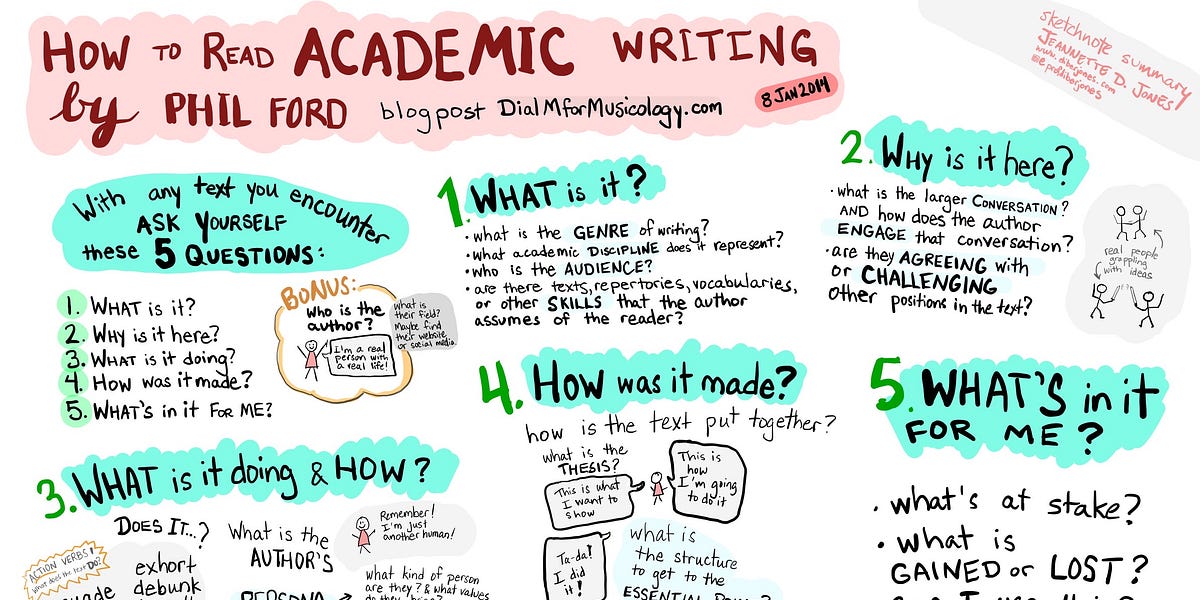 HOW TO READ ACADEMIC WRITING
by PHIL FORD blog post DialMforMusicology.com 8 JAN 2014
sketchnote summary
JEANNETTE D. JONES
With any text you encounter
ASK YOURSELF
these 5 QUESTIONS:
1. WHAT is it?
2. WHY is it here?
3. WHAT is it doing?
4. HOW was it made?
5. WHAT'S in it FOR ME?
BONUS:
WHO is the
author?
I'm a real
person with
a real life!
What is
their field?
Maybe find
their website
or social media.
1. WHAT is it?
• what is the GENRE of writing?
• what academic DISCIPLINE does it represent?
• who is the AUDIENCE?
• are there texts, repertories, vocabularies,
or other SKILLS that the author
assumes of the reader?
2. WHY is it here?
• what is the larger CONVERSATION?
AND how does the author
ENGAGE that conversation?
• are they AGREEING with
or CHALLENGING
other positions in the text?
real people
grappling
with ideas
3. WHAT is it doing & HOW?
DOES IT...?
ACTION VERBS!
What does the text DO?
exhort
debunk
What is the
AUTHOR'S
PERSONA
Remember!
I'm just
another human!
what kind of person
are they? & what values
4. HOW was it made?
how is the text put together?
what is the
THESIS?
This is what
I want to
show
This is
how
I'm going
to do it
Ta-da!
I did
it!
what is
the structure
to get to the
ESSENTIAL
5. WHAT'S in it
FOR ME?
• what's at stake?
• what is
GAINED or LOST?